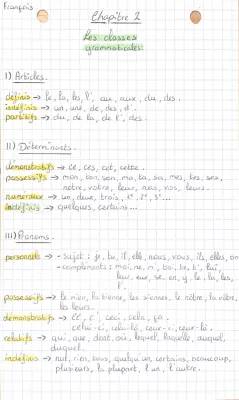 Français
Chapitre 2
Les classes
grammaticales.
I) Articles.
définis → le, la, les, l', au, aux, du, des.
indéfinis → un, une, de, des, d'.
partitifs → du, de la, de l', des.
II) Déterminants.
démonstratifs → ce, ces, cet, cette.
possessifs → mon, ton, son, ma, ta, sa, mes, tes, ses,
notre, votre, leur, nos, vos, leurs.
numéraux → un, deux, trois, 1°, 2°, 3°...
indéfinis → quelques, certains...
III) Pronoms.
personnels → - sujet : je, tu, il, elle, nous, vous, ils, elles, on
- compléments : moi, me, m', toi, te, t', lui,
leur, eux, se, en, y, le, la, les,
l'.
possessifs → le mien, la tienne, les siennes, le nôtre, la vôtre,
les leurs.
démonstratifs → ce, c', ceci, cela, ça.
celui-ci, celui-là, ceux-ci, ceux-là.
relatifs → qui, que, dont, où, lequel, laquelle, auquel,
duquel.
indéfinis → nul, rien, tous, quelqu'un, certains, beaucoup,
plusieurs, la plupart, l'un, l'autre.